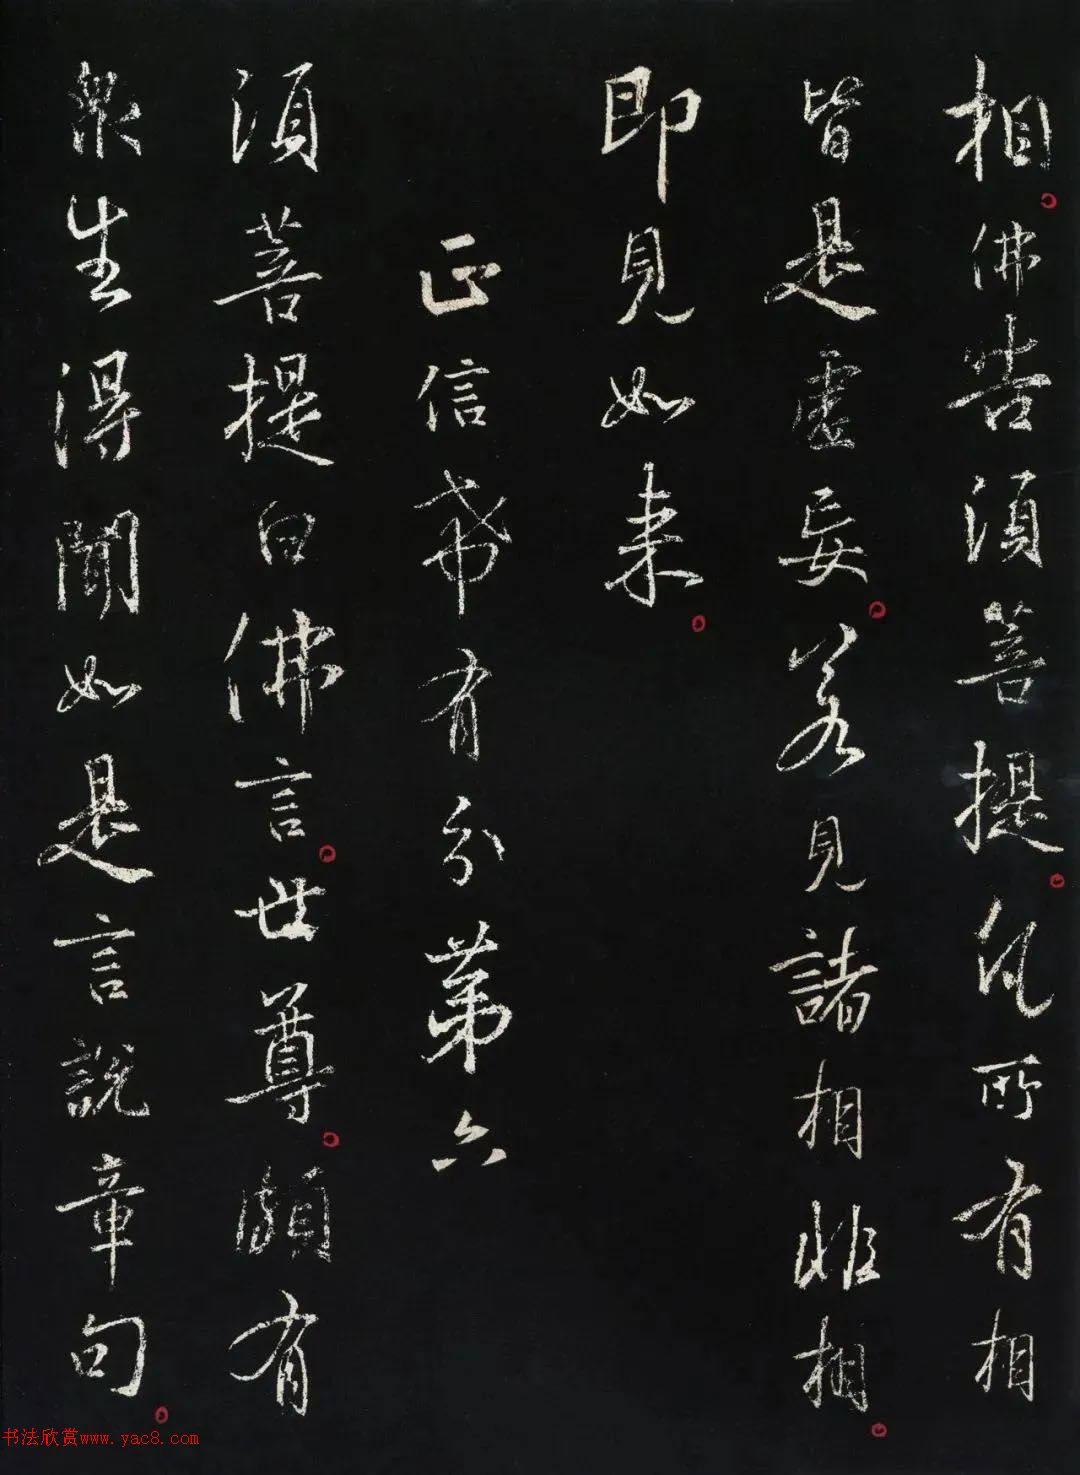 相佛告須菩提凡所有相
皆是虛妄若見諸相非相
即見如来
正信希有分第六
須菩提白佛言世尊頗有
衆生得聞如是言說章句
书法欣赏www.yac8.com